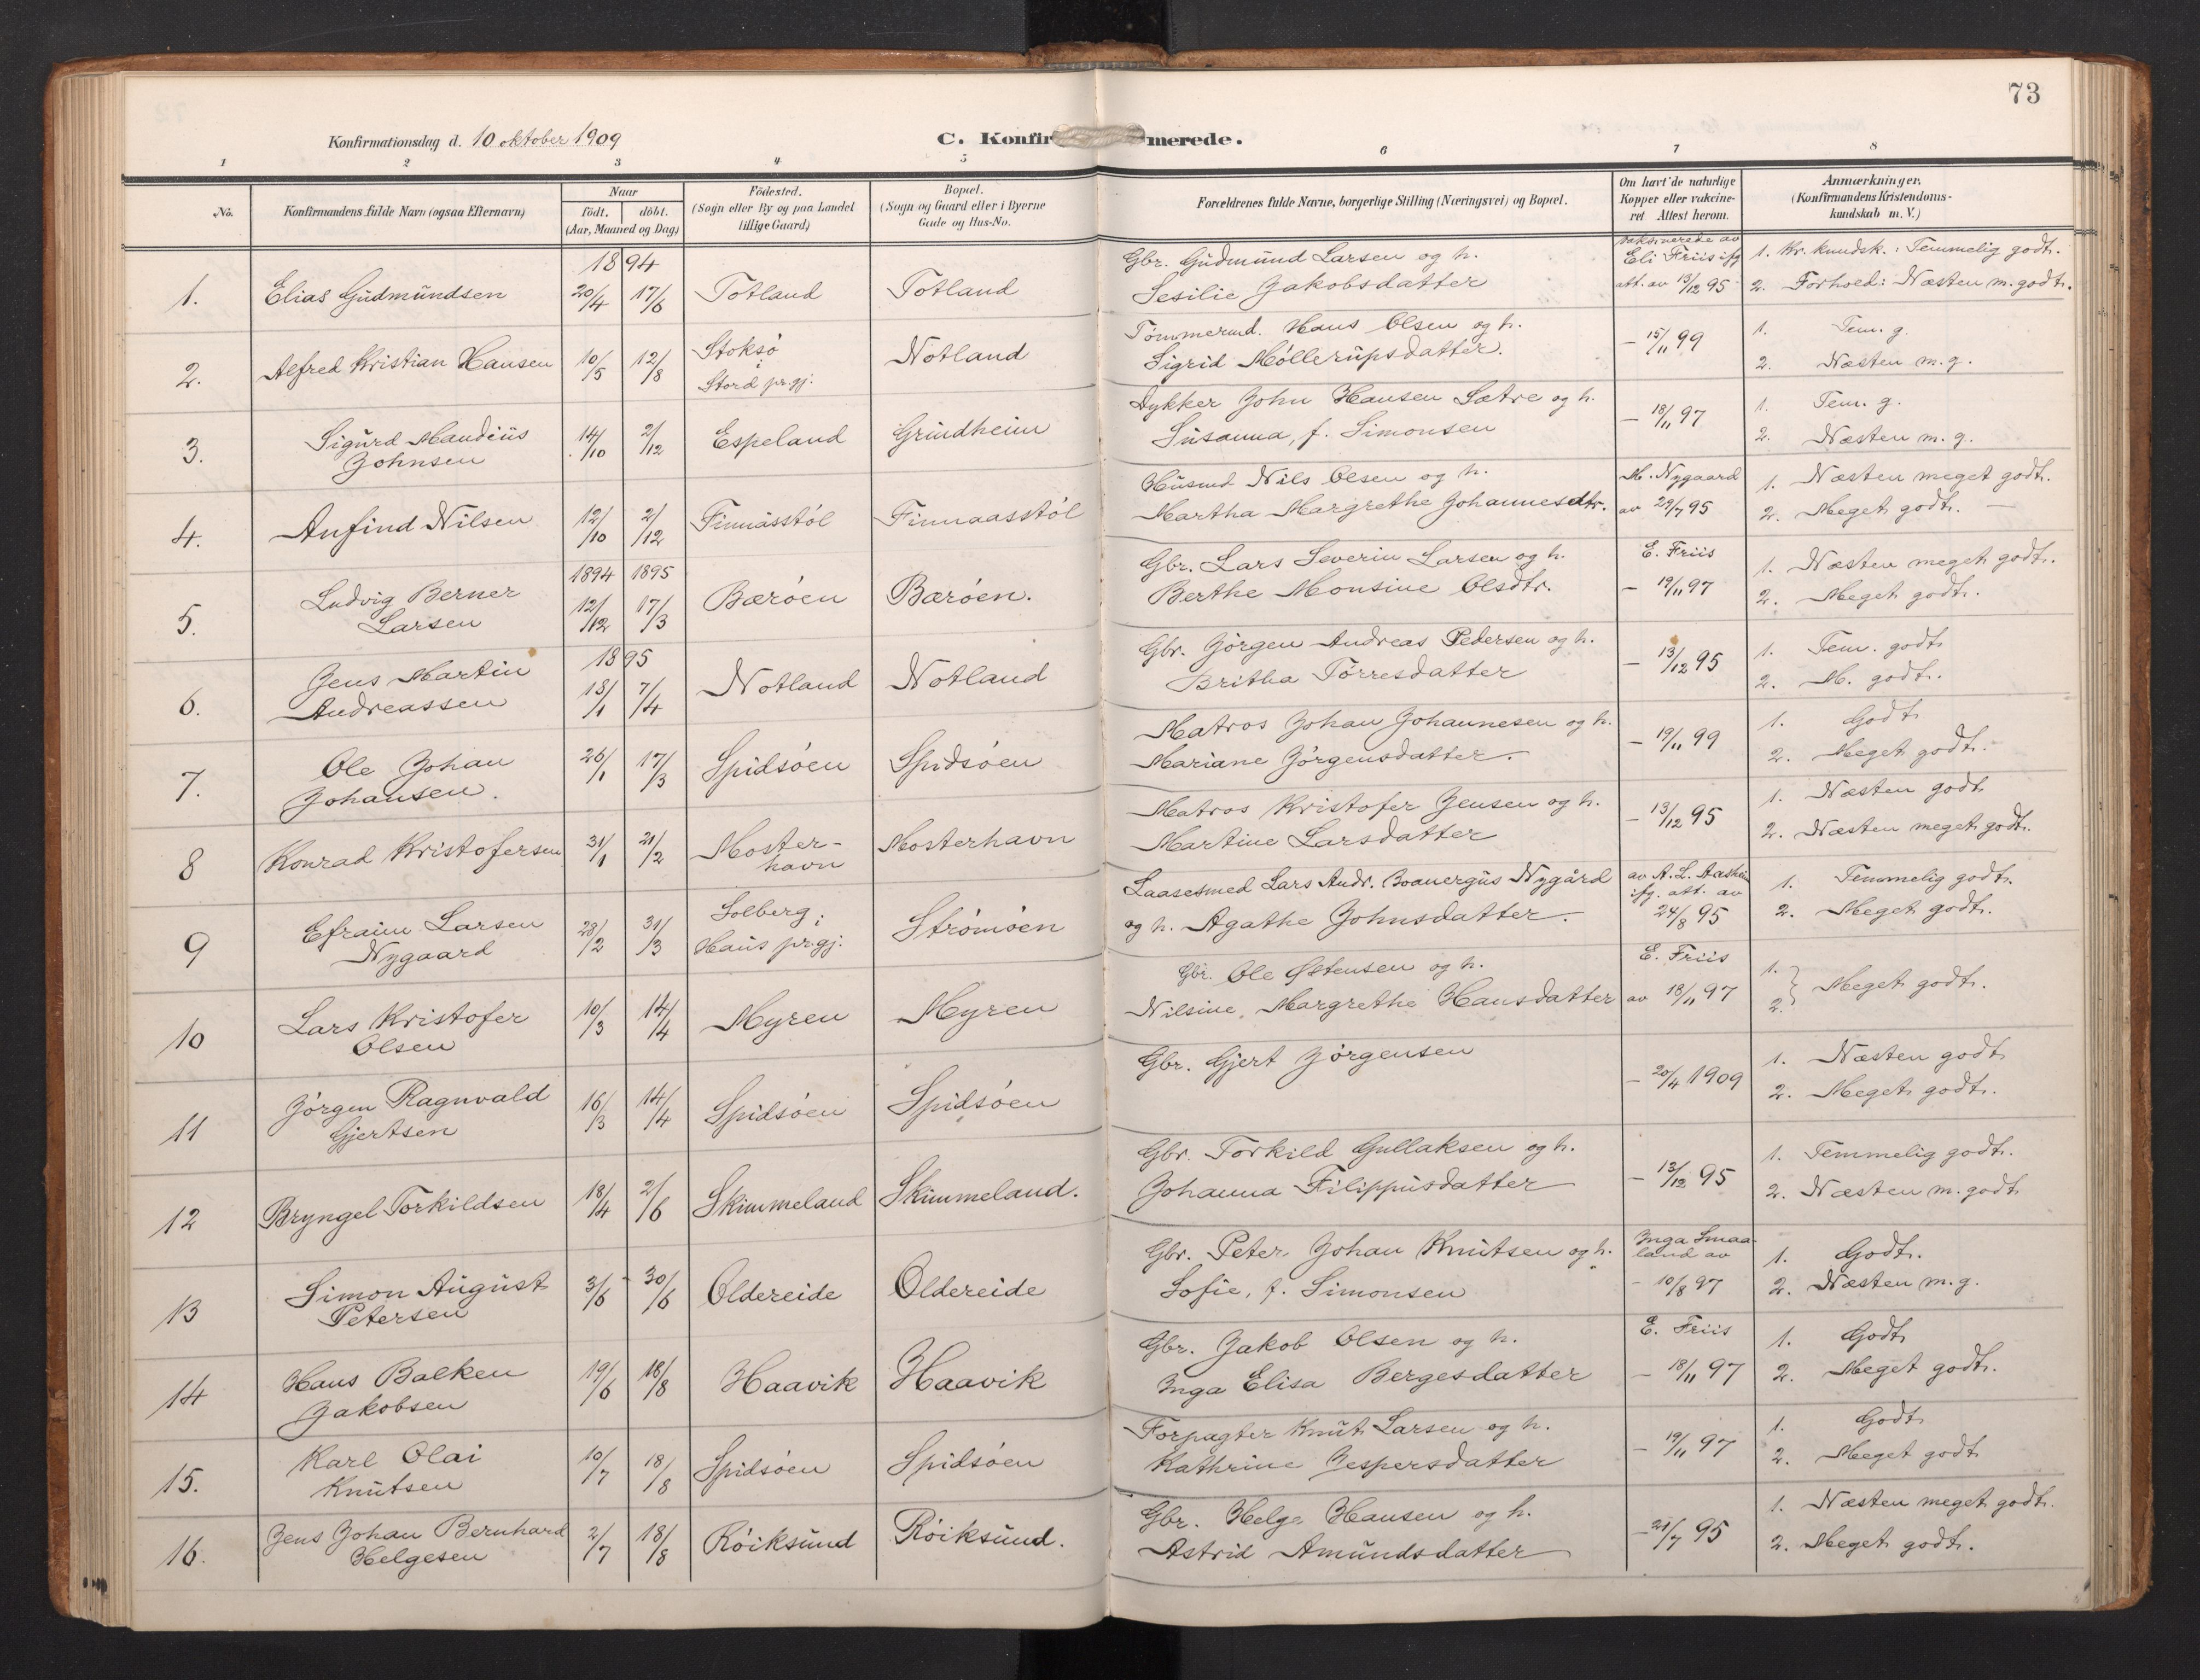 73
Konfirmationsdag d. 10 oktober 1909
C. Konfir merede.
1 2 3 4 5 6 7 8
No.
Konfirmandens fulde Navn (ogsaa Efternavn)
Naar
födt. döbt.
(Aar, Maaned og Dag)
Födested.
(Sogn eller By og paa Landet
tillige Gaard)
Bopæl.
(Sogn og Gaard eller i Byerne
Gade og Hus-No.
Forældrenes fulde Navne, borgerlige Stilling (Næringsvei) og Bopæl.
Om havt de naturlige
Kopper eller vakcine-
ret Attest herom.
Anmærkninger.
(Konfirmandens Kristendoms-
kundskab m. V.)
1894
1. Elias Gudmundsen 20/4 17/6 Totland Totland
Gbr. Gudmund Larsen og h.
Sesilie Jakobsdatter
vaksinerede av
Eli Friis ifg
att. av 13/12 95
1. Kr. kundsk.: Temmelig godt.
2. Forhoed: Næsten m. godt.
2. Alfred Kristian Hansen 10/5 12/8
Stoksø
i
Stord pr.gj.
Notland
Tømmermd. Hans Olsen og h.
Sigrid Møllerupsdatter.
– 15/11 99
1. Tem. g.
2. Næsten m. g.
3. Sigurd Mandius
Johnsen
14/10 2/12 Espeland Grindheim
Dykker John Hansen Sætre og h.
Susanna, f. Simonsen
– 18/11 97
1. Tem. g.
2. Næsten m. g.
4. Anfind Nilsen 12/10 2/12 Finnåsstøl Finnaasstøl
Husmd Nils Olsen og h.
Martha Margrethe Johannesdtr.
M. Nygaard
av 29/7 95
1. Næsten meget godt.
2. Meget godt. –
5. Ludvig Berner
Larsen
1894 1895
12/12 17/3 Bærøen Bærøen.
Gbr. Lars Severin Larsen og h.
Berthe Monsine Olsdtr.
E. Friis
– 19/11 97
1. Næsten meget godt.
2. Meget godt.
1895
6. Jens Martin
Andreassen
13/1 7/4 Notland Notland
Gbr. Jørgen Andreas Pedersen og h.
Britha Tørresdatter
– 13/12 95
1. Tem. godt
2. M. godt.
7. Ole Johan
Johansen.
26/1 17/3 Spidsøen Spidsøen
Matros Johan Johannesen og h.
Mariane Jörgensdatter.
– 19/11 99
1. Godt
2. Meget godt.
8 Konrad Kristofersen 31/1 21/2
Moster-
havn
Mosterhavn
Matros Kristofer Jensen og h.
Martine Larsdatter
– 13/12 95
1. Næsten godt
2. Næsten meget godt.
9 Efraim Larsen
Nygaard
28/2 31/3
Solberg i
Haus pr.gj.
Strømøen
Laasesmed Lars Andr. Boanergus Nygård
og h. Agathe Johnsdatter.
av A. L.
ifg. att. av
24/8 95
1. Temmelig godt.
2. Meget godt.
10 Lars Kristofer
Olsen
10/3 14/4 Myren Myren
Gbr. Ole Østensen og h.
Nilsine Margrethe Hansdatter
E. Friis
av 18/11 97
1.
2. Meget godt.
11 Jørgen Ragnvald
Gjertsen
16/3 14/4 Spidsøen Spidsøen
Gbr. Gjert Jørgensen
– 20/4 1909
1. Næsten godt
2. Meget godt.
12 Bryngel Torkildsen 18/4 2/6 Skimmeland Skimmeland.
Gbr. Torkild Gullaksen og h.
Johanna Filippusdatter
– 13/12 95
1. Temmelig godt.
2. Næsten m. godt
13 Simon August
Petersen
3/6 30/6 Oldereide Oldereide
Gbr. Peter Johan Knutsen og h.
Sofie, f. Simonsen
Inga Smaa-
land av
– 10/8 97
1. Godt.
2. Næsten m. g.
14 Hans Balken
Jakobsen
19/6 18/8 Haavik Haavik
Gbr. Jakob Olsen og h.
Inga Elisa Bergesdatter
E. Friis
– 18/11 97
1. Godt
2. Meget godt.
15. Karl Olai
Knutsen
10/7 18/8 Spidsøen Spidsøen
Forpagter Knut Larsen og h.
Kathrine Jespersdatter
– 19/11 97
1. Godt
2. Meget godt
16. Jens Johan Bernhard
Helgesen
2/7 18/8 Røiksund Røiksund.
Gbr. Helge Hansen og h.
Astrid Amundsdatter
– 21/7 95
1. Næsten meget godt.
2. Meget godt.